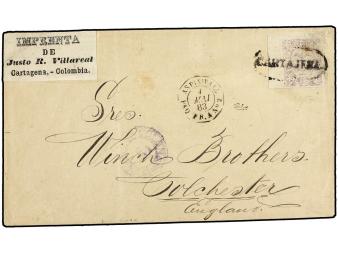 IMPRENTA
DE
Justo R. Villareal
Cartagena, - Colombia.
CARTAJENA
COL. ASPINWALL
MAI
83
Sres.
Winch Brothers.
Colchester
England.